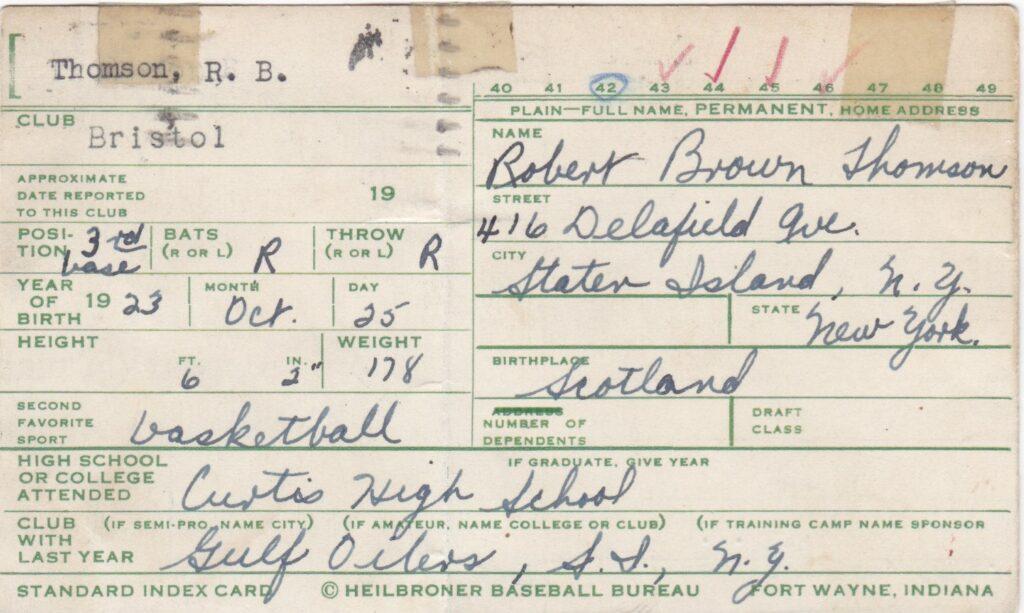 Thomson, R. B.
40 41 42 43 44 45 46 47 48 49
PLAIN—FULL NAME, PERMANENT, HOME ADDRESS
CLUB Bristol
NAME
Robert Brown Thomson
APPROXIMATE
DATE REPORTED 19
TO THIS CLUB
STREET
416 Delafield Ave.
POSI- 3rd BATS THROW
TION base (R OR L) R (R OR L) R
CITY
Staten Island, N.Y.
YEAR MONTH DAY
OF 19 23 Oct. 25
BIRTH
STATE New York.
HEIGHT WEIGHT
FT. IN. 178
6 2"
BIRTHPLACE
Scotland
SECOND
FAVORITE basketball
SPORT
ADDRESS
NUMBER OF
DEPENDENTS
DRAFT
CLASS
HIGH SCHOOL IF GRADUATE, GIVE YEAR
OR COLLEGE
ATTENDED Curtis High School
CLUB (IF SEMI-PRO, NAME CITY) (IF AMATEUR, NAME COLLEGE OR CLUB) (IF TRAINING CAMP NAME SPONSOR
WITH
LAST YEAR Gulf Oilers, S.I., N.Y.
STANDARD INDEX CARD © HEILBRONER BASEBALL BUREAU FORT WAYNE, INDIANA